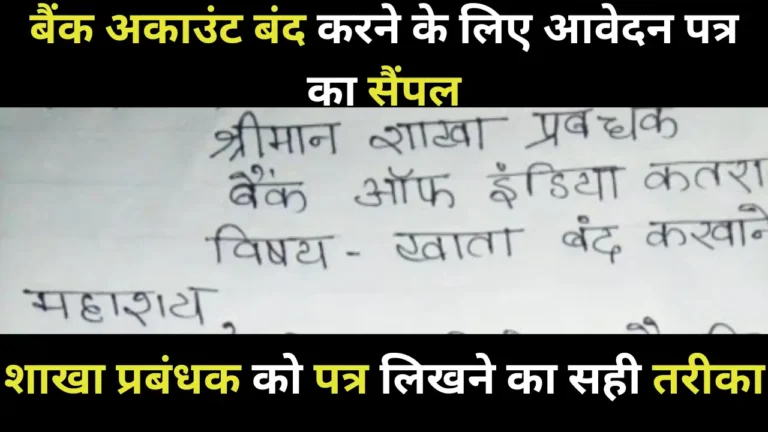 बैंक अकाउंट बंद करने के लिए आवेदन पत्र
का सैंपल
श्रीमान शाखा प्रबंधक
बैंक ऑफ इंडिया कतरा
विषय - खाता बंद करवाने
महाशय,
शाखा प्रबंधक को पत्र लिखने का सही तरीका